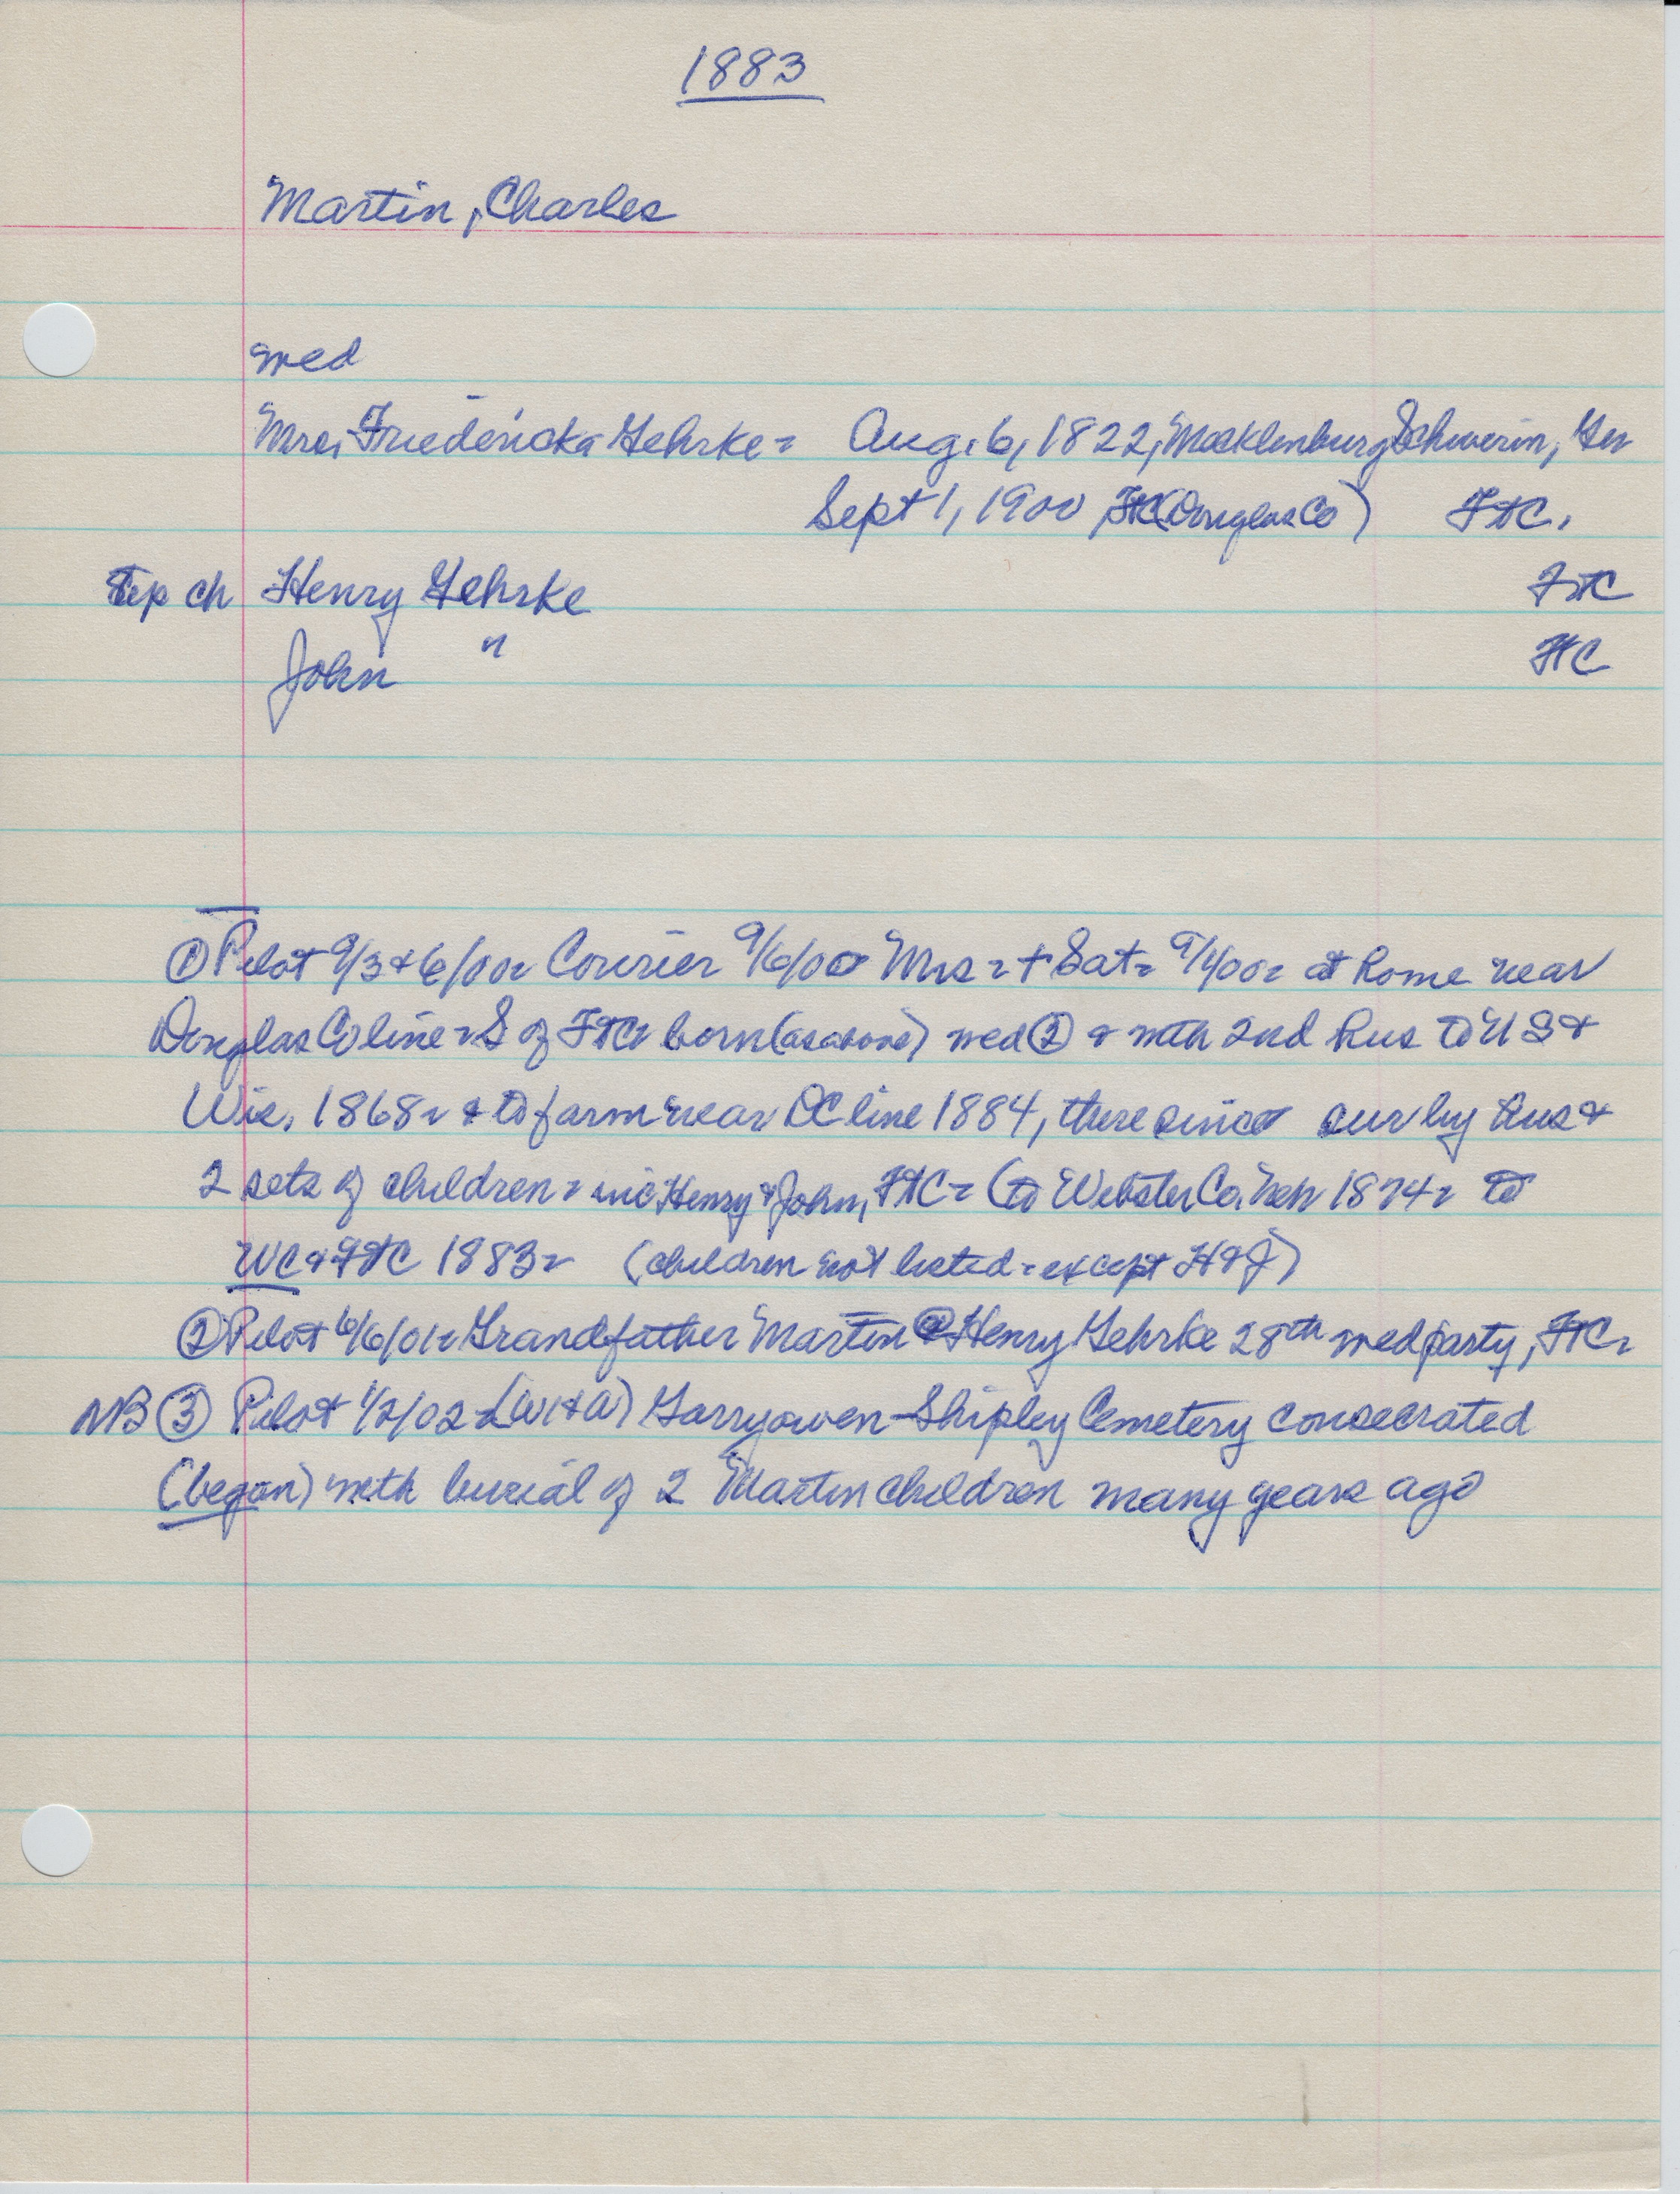 1883
Martin, Charles
wed
Mrs. Friedericka Gehrke = Aug. 6, 1822, Mecklenburg Schwerin, Ger
Sept 1, 1900 FtC (Douglas Co) FtC.
Step ch Henry Gehrke FtC
John " FtC
① Pilot 9/3 & 6/00 = Courier 9/6/00 Mrs = + Sat = 9/1/00 = at home near
Douglas Co line = S of FtC = born (as above) wed ② & with 2nd hus to U S &
Wis. 1868 = & to farm near DC line 1884, there since sur by hus &
2 sets of children = inc Henry & John, FtC = (to Webster Co. Neb 1874 = to
WC & FtC 1883 = (children not listed = except H & J)
② Pilot 6/6/01 = Grandfather Martin @ Henry Gehrke 28th wed party, FtC =
NB ③ Pilot 1/2/02 = Garryowen-Shipley Cemetery consecrated
(began) with burial of 2 Martin children many years ago